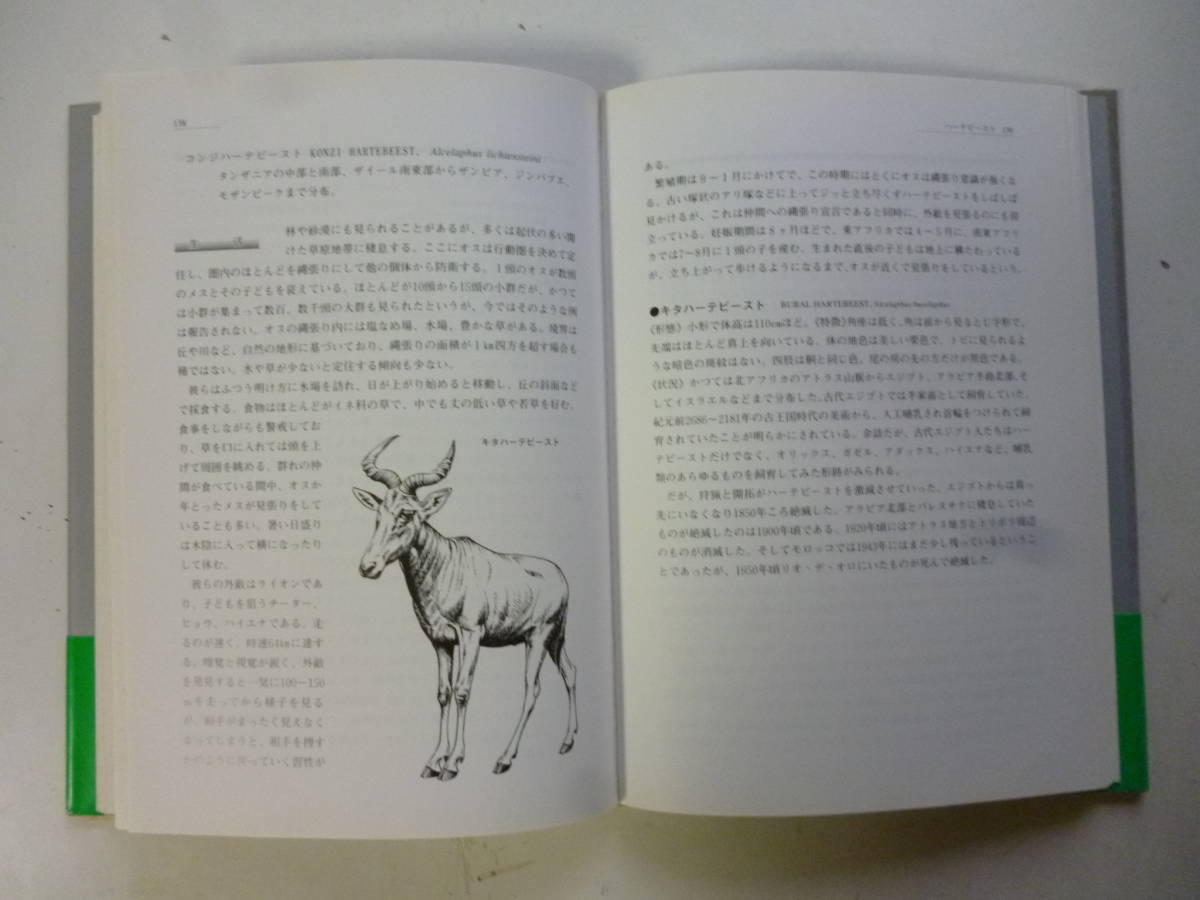 コンジハーテビースト KONZI HARTEBEEST、Alcelaphus lichtensteini
タンザニアの中部と南部、ザイール南東部からザンビア、ジンバブエ、
モザンビークまで分布。
林や砂漠にも見られることがあるが、多くは起伏の多い開
けた草原地帯に棲息する。ここにオスは行動圏を決めて定
住し、圏内のほとんどを縄張りにして他の個体から防衛する。1頭のオスが数頭
のメスとその子どもを従えている。ほとんどが10頭から15頭の小群だが、かつて
は小群が集まって数百、数千頭の大群も見られたというが、今ではそのような例
は報告されない。オスの縄張り内には塩なめ場、水場、豊かな草がある。境界は
丘や川など、自然の地形に基づいており、縄張りの面積が1km四方を超す場合も
稀ではない。水や草が少ないと定住する傾向も少ない。
彼らはふつう明け方に水場を訪れ、日が上がり始めると移動し、丘の斜面など
で採食する。食物はほとんどがイネ科の草で、中でも丈の低い草や若草を好む。
食事をしながらも警戒してお
り、草を口に入れては頭を上
げて周囲を眺める。群れの仲
間が食べている間中、オスか
年とったメスが見張りをして
いることも多い。暑い日盛り
は木陰に入って横になったり
して休む。
彼らの外敵はライオンであ
り、子どもを狙うチーター、
ヒョウ、ハイエナである。走
るのが速く、時速64kmに達す
る。嗅覚と視覚が鋭く、外敵
を発見すると一気に100〜150
mを走ってから様子を見る
が、相手がまったく見えなく
なってしまうと、相手を捜す
かのように戻っていく習性が
キタハーテビースト
ハーテビースト
ある。
繁殖期は9〜1月にかけてで、この時期にはとくにオスは縄張り意識が強くな
る。古い塚状のアリ塚などに上ってジッと立ち尽くすハーテビーストをしばしば
見かけるが、これは仲間への縄張り宣言であると同時に、外敵を見張るのにも役
立っている。妊娠期間は8ヶ月ほどで、東アフリカでは4〜5月に、南東アフリ
カでは7〜8月に1頭の子を産む。生まれた直後の子どもは地上に横たわっている
が、立ち上がって歩けるようになるまで、オスが近くで見張りをしているという。
●キタハーテビースト BUBAL HARTEBEEST, Alcelaphus buselaphus
《形態》小形で体高は110cmほど。《特徴》角座は低く、角は前から見るとU字形で、
先端はほとんど真上を向いている。体の地色は美しい栗色で、トピに見られるよ
うな暗色の斑紋はない。四肢は胴と同じ色。尾の房の先の方だけが黒色である。
《状況》かつては北アフリカのアトラス山脈からエジプト、アラビア半島北部、そ
してイスラエルなどまで分布した。古代エジプトでは半家畜として飼育していた。
紀元前2686〜2181年の古王国時代の美術から、人工哺乳され首輪をつけられて飼
育されていたことが明らかにされている。余談だが、古代エジプト人たちはハー
テビーストだけでなく、オリックス、ガゼル、アダックス、ハイエナなど、哺乳
類のあらゆるものを飼育してみた形跡がみられる。
だが、狩猟と開拓がハーテビーストを激減させていった。エジプトからは真っ
先にいなくなり1850年ころ絶滅した。アラビア北部とパレスチナに棲息していた
ものが絶滅したのは1900年頃である。1920年頃にはアトラス地方とトリポリ周辺
のものが消滅した。そしてモロッコでは1943年にはまだ少し残っているというこ
とであったが、1950年頃リオ・デ・オロにいたものが死んで絶滅した。